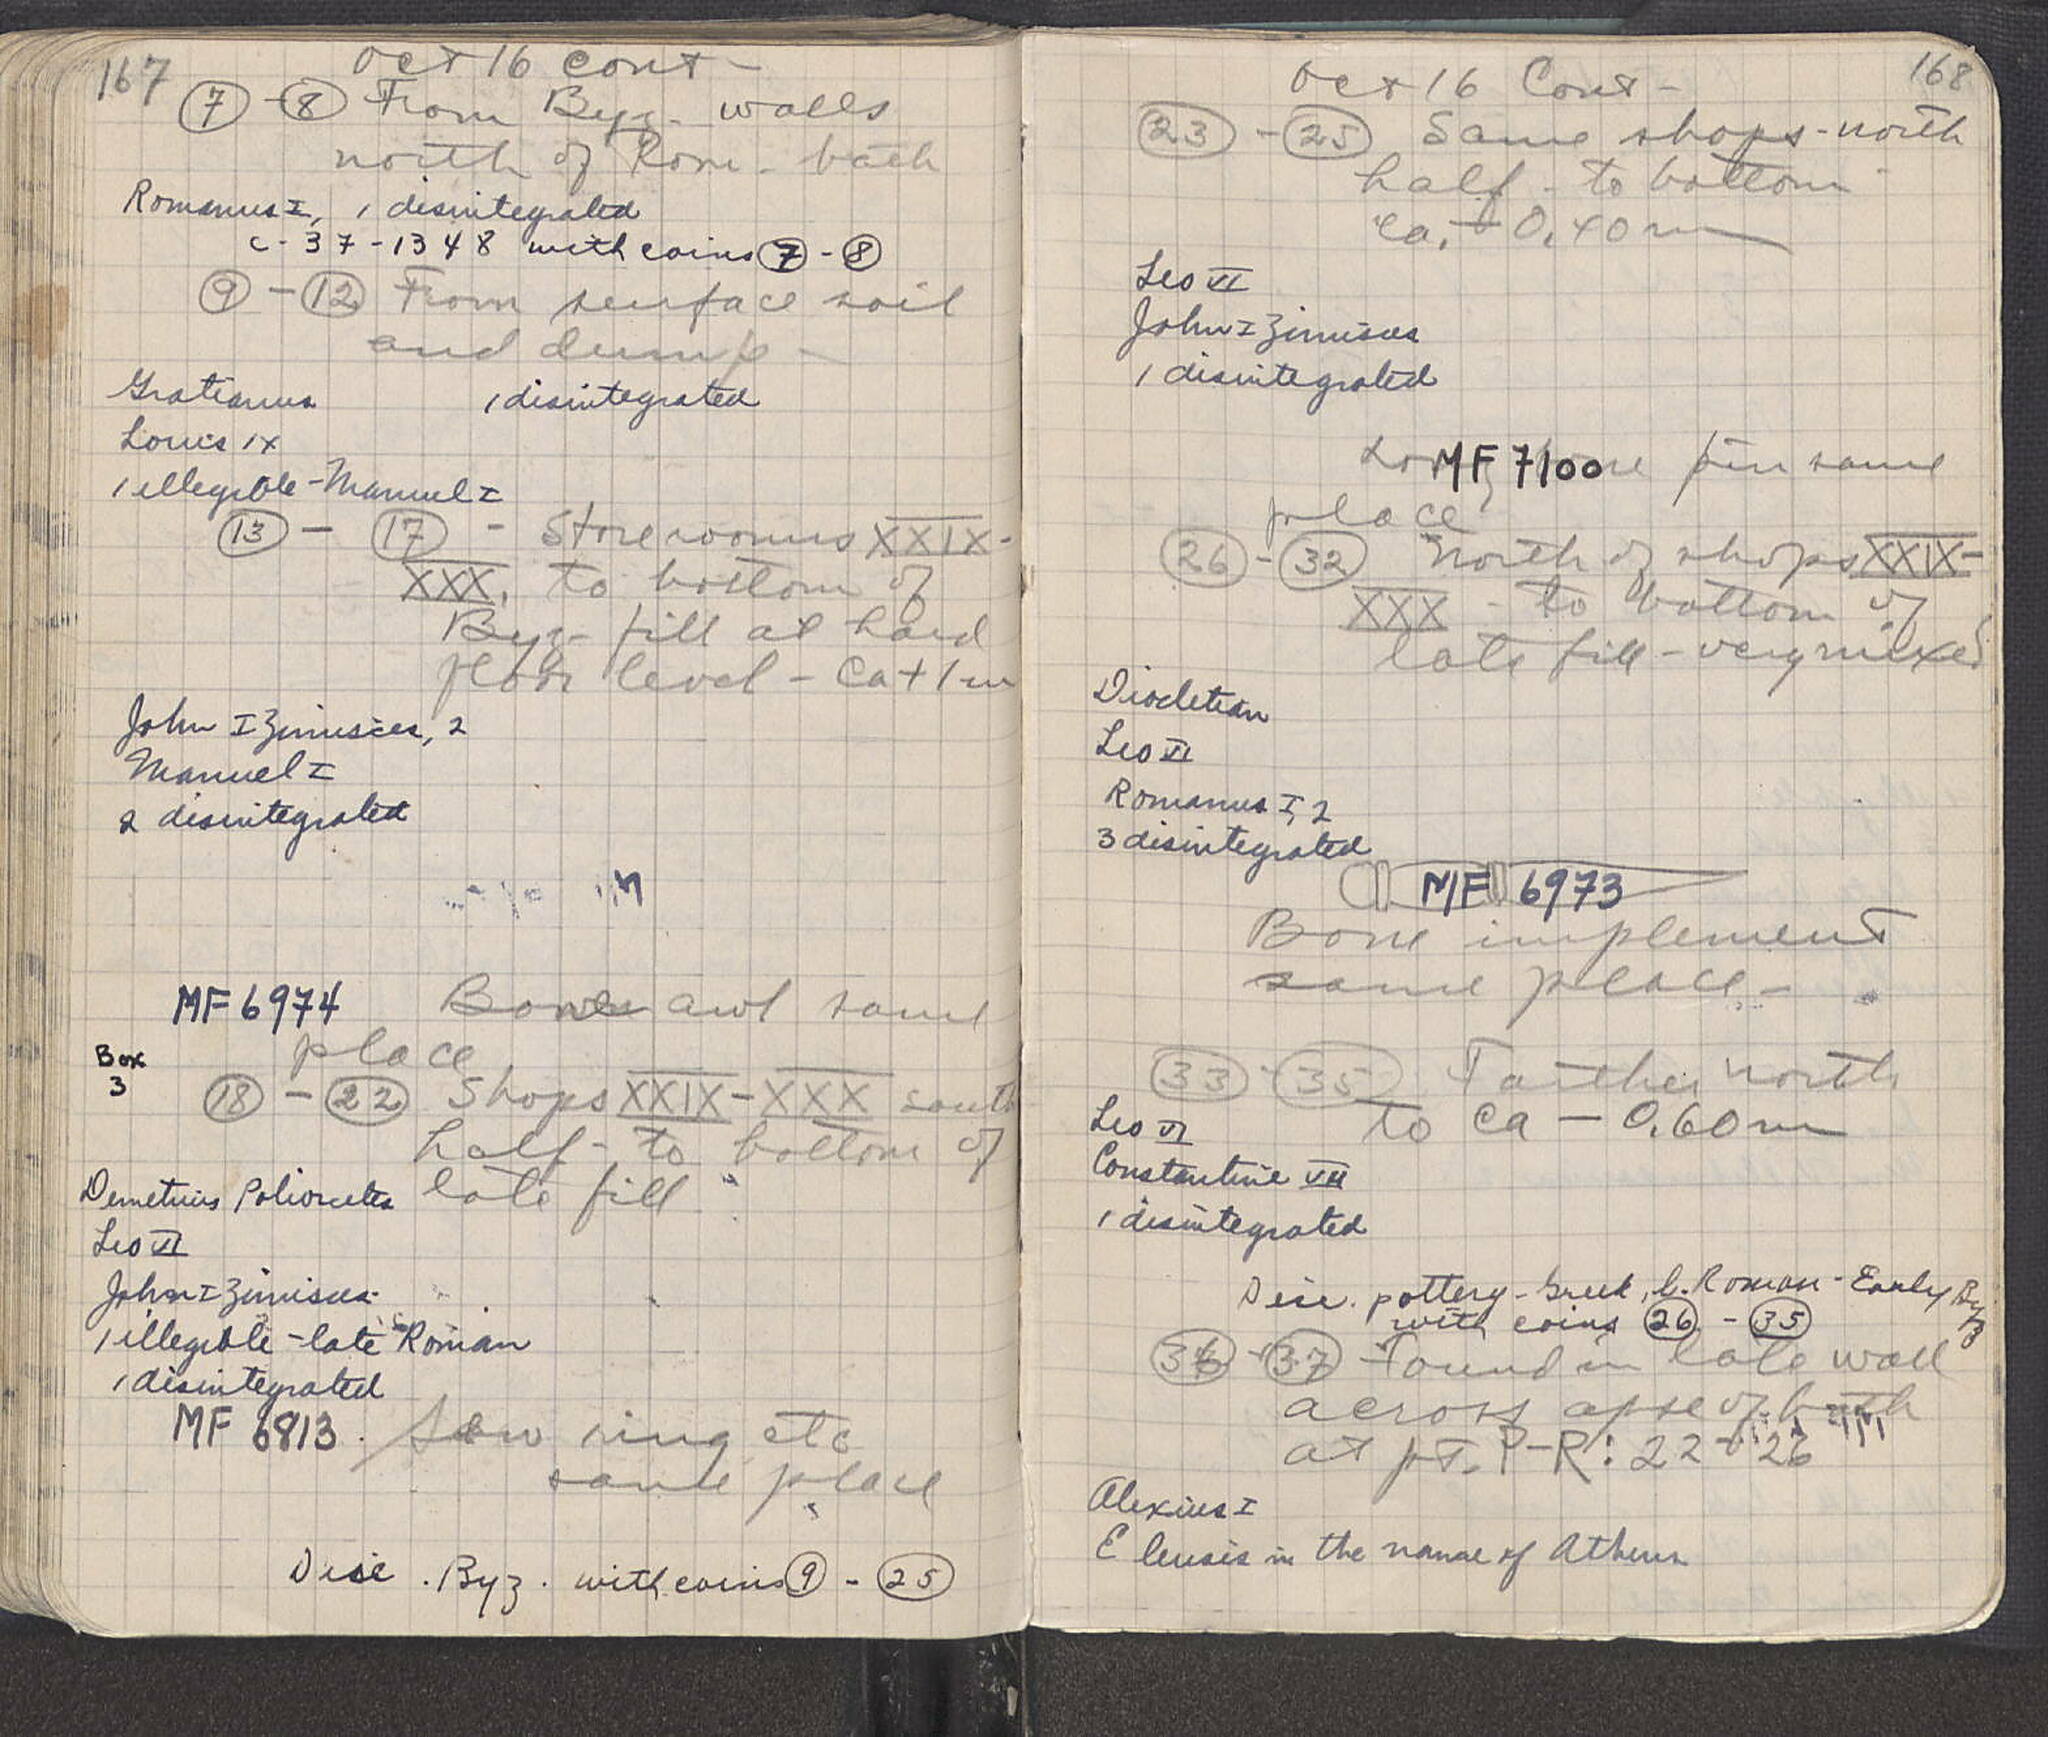 167
Oct 16 Cont -
7 - 8 From Byz. walls
north of Rom. bath
Romanus I, 1 disintegrated
C-37-1348 with coins 7 - 8
9 - 12 From surface soil
and dump -
Gratianus 1 disintegrated
Louis IX
1 illegible - Manuel I
13 - 17 - Storerooms XXIX-
XXX, to bottom of
Byz. fill at hard
floor level - Ca + 1 m
John I Zimisces, 2
Manuel I
2 disintegrated
MF 6974 Bone awl same
place
Box
3
18 - 22 Shops XXIX - XXX south
half - to bottom of
late fill
Demetrius Poliorcetes
Leo VI
John I Zimisces
1 illegible - late Roman
1 disintegrated
MF 6813. ring etc
same place
Disc. Byz. with coins 9 - 25
168
Oct 16 Cont -
23 - 25 Same shops - north
half - to bottom
ca. + 0.40 m
Leo VI
John I Zimisces
1 disintegrated
MF 7100 pin same
place
26 - 32 North of shops XXIX-
XXX - to bottom of
late fill - very mixed
Diocletian
Leo VI
Romanus I, 2
3 disintegrated
MF 6973
Bone implement
same place -
33 - 35 Farther north
to ca - 0.60 m
Leo VI
Constantine VII
1 disintegrated
Disc. pottery - Greek, l. Roman - Early Byz
with coins 26 - 35
36 - 37 Found in late wall
across apse of bath
at pt. P-R: 22-26
Alexius I
Eleusis in the name of Athens